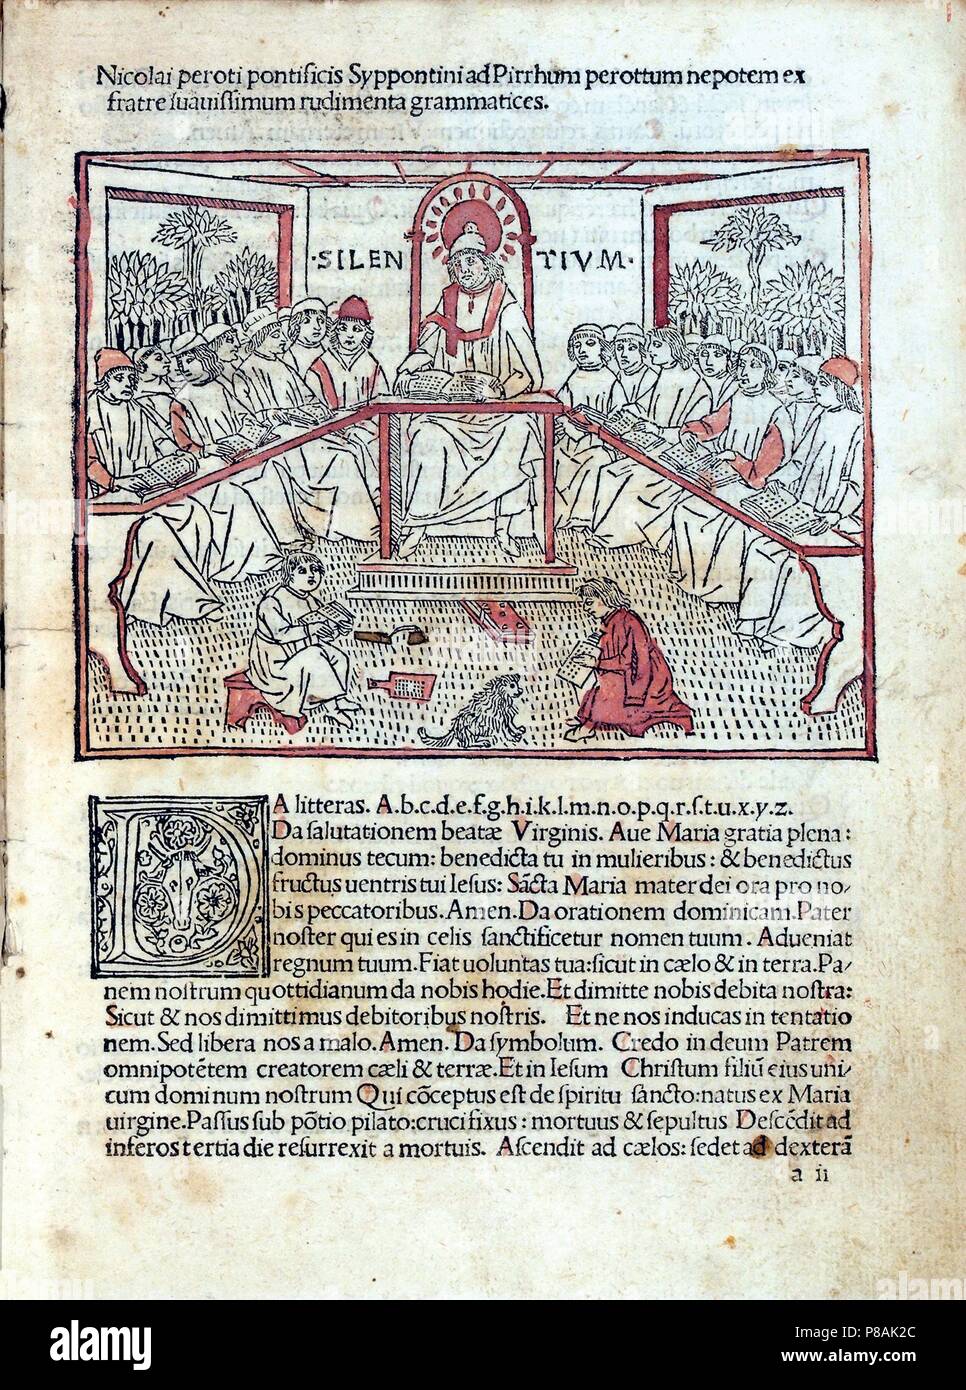 Nicolai peroti pontificis Syppontini ad Pirrhum perottum nepotem ex
fratre suauissimum rudimenta grammatices.
·SILEN TIVM·
DA litteras. A.b.c.d.e.f.g.h.i.k.l.m.n.o.p.q.r.s.t.u.x.y.z.
Da salutationem beatæ Virginis. Aue Maria gratia plena:
dominus tecum: benedicta tu in mulieribus: & benedictus
fructus uentris tui Iesus: Sãcta Maria mater dei ora pro no/
bis peccatoribus. Amen. Da orationem dominicam. Pater
noster qui es in celis sanctificetur nomen tuum. Adueniat
regnum tuum. Fiat uoluntas tua: sicut in cælo & in terra. Pa/
nem nostrum quottidianum da nobis hodie. Et dimitte nobis debita nostra:
Sicut & nos dimittimus debitoribus nostris. Et ne nos inducas in tentatio
nem. Sed libera nos a malo. Amen. Da symbolum. Credo in deum Patrem
omnipotẽtem creatorem cæli & terræ. Et in Iesum Christum filiũ eius uni/
cum dominum nostrum Qui cõceptus est de spiritu sancto: natus ex Maria
uirgine. Passus sub põtio pilato: crucifixus: mortuus & sepultus Descẽdit ad
inferos tertia die resurrexit a mortuis. Ascendit ad cælos: sedet ad dexterã
a ii
alamy
Image ID: P8AK2C
www.alamy.com